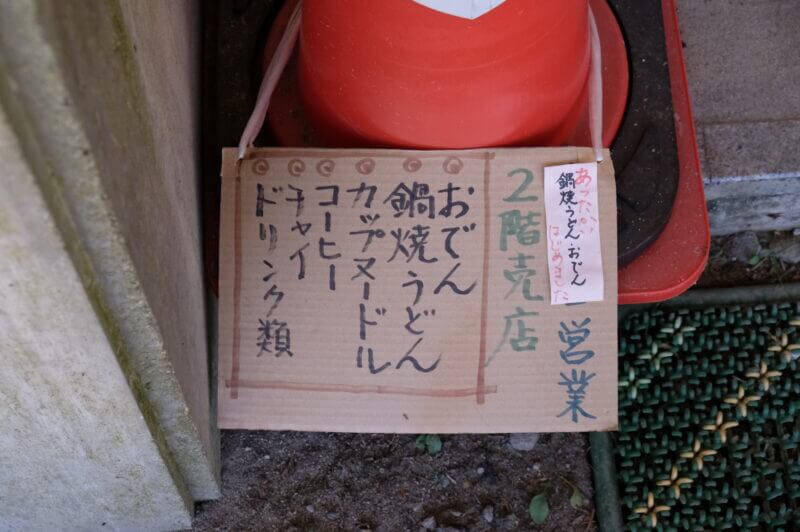 あったかい
鍋焼うどん・おでん
はじめました
営業
2階売店
おでん
鍋焼うどん
カップヌードル
コーヒー
チャイ
ドリンク類